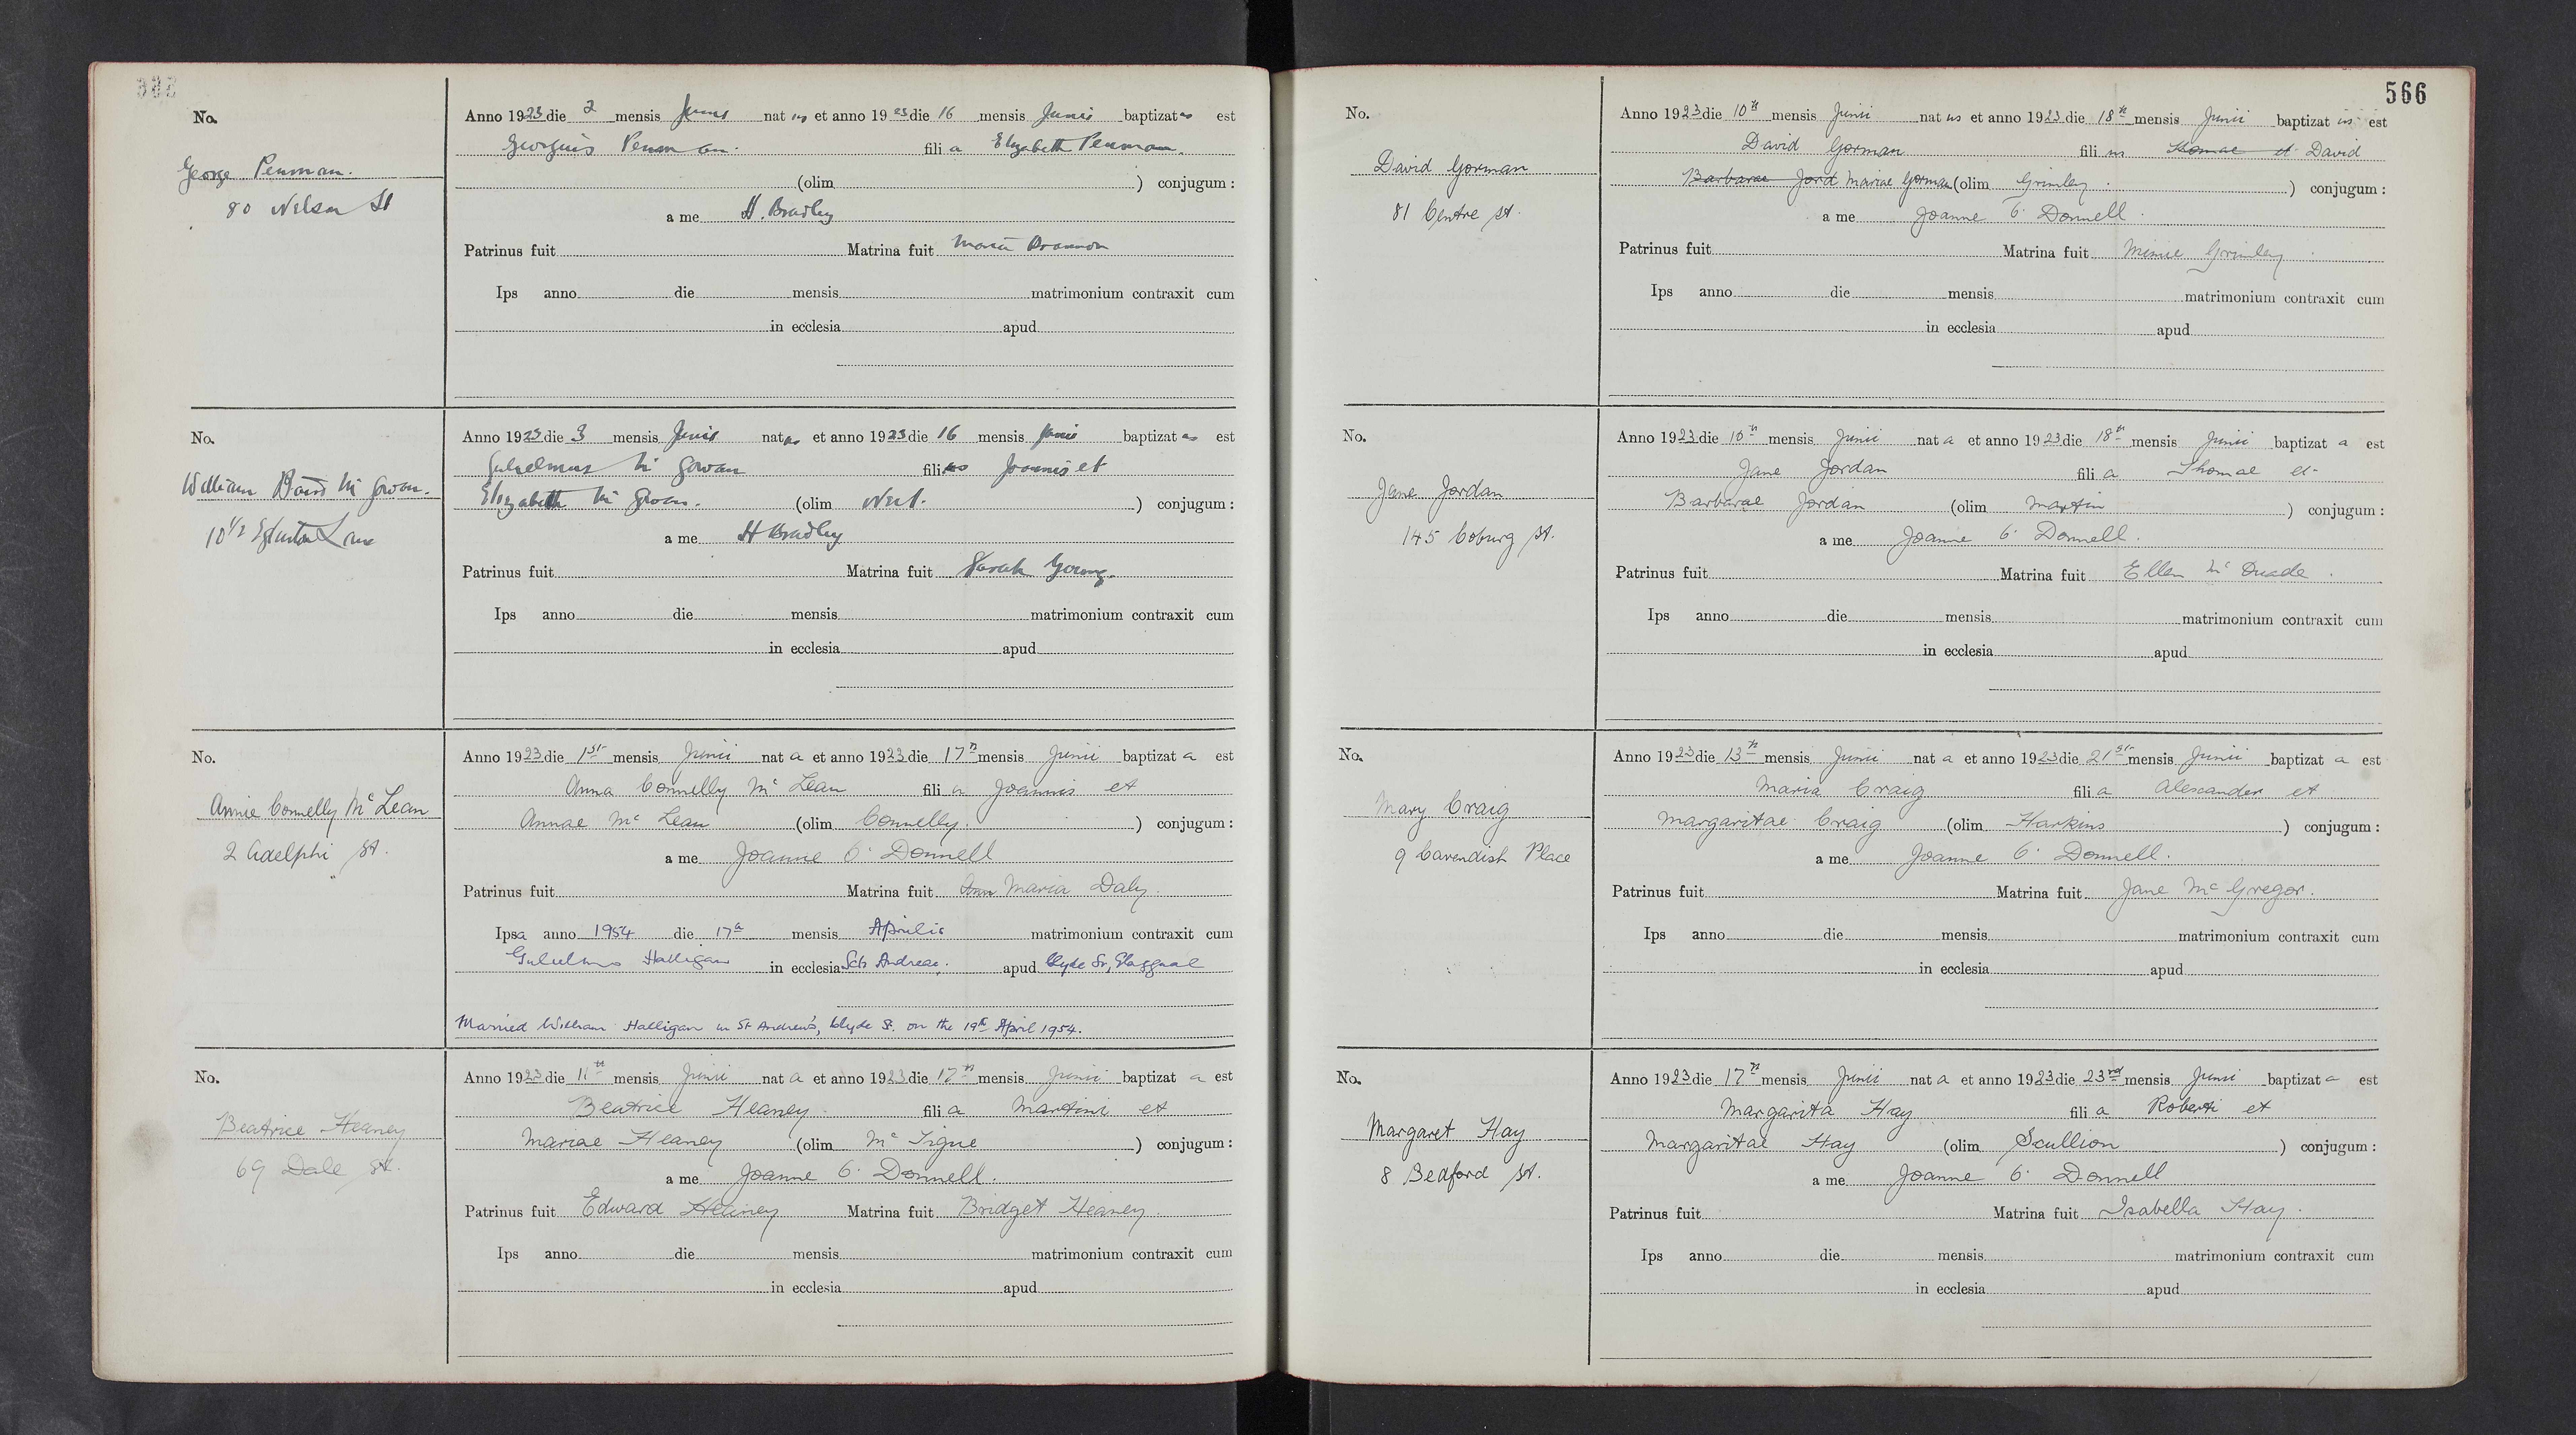 No.
George Penman.
80 Nelson St
Anno 1923 die 2 mensis Junii natus et anno 1923 die 16 mensis Junii baptizatus est
Georgius Penman. filia Elizabeth Penman.
(olim ) conjugum:
a me H. Bradley
Patrinus fuit Matrina fuit Maria
Ips anno die mensis matrimonium contraxit cum
in ecclesia apud
No.
William Mc Gowan.
10 1/2 Lane
Anno 1923 die 3 mensis Junii natus et anno 1923 die 16 mensis Junii baptizatus est
Gulielmus Mc Gowan filius Joannis et
Elizabeth Mc Gowan. (olim ) conjugum:
a me H Bradley
Patrinus fuit Matrina fuit Sarah Young.
Ips anno die mensis matrimonium contraxit cum
in ecclesia apud
No.
Annie Connelly Mc Lean
2 Adelphi St.
Anno 1923 die 1st mensis Junii nat a et anno 1923 die 17th mensis Junii baptizat a est
Anna Connelly Mc Lean filia Joannis et
Annae Mc Lean (olim Connelly. ) conjugum:
a me Joanne O' Donnell
Patrinus fuit Matrina fuit Maria Daly.
Ipsa anno 1954 die 17a mensis Aprilis matrimonium contraxit cum
Gulielmo Halligan in ecclesia Scti Andreae. apud Clyde St, Glasguae
Married William Halligan in St Andrew's, Clyde St. on the 19th April 1954.
No.
Beatrice Heaney
69 Dale St.
Anno 1923 die 11th mensis Junii nat a et anno 1923 die 17th mensis Junii baptizat a est
Beatrice Heaney. filia Martini et
Mariae Heaney (olim Mc Tigue ) conjugum:
a me Joanne O' Donnell.
Patrinus fuit Edward Heaney Matrina fuit Bridget Heaney.
Ips anno die mensis matrimonium contraxit cum
in ecclesia apud
566
No.
David Gorman
81 Centre St.
Anno 1923 die 10th mensis Junii nat us et anno 1923 die 18th mensis Junii baptizat us est
David Gorman filius Thomae et David
Barbarae Jord Mariae Gorman (olim Grimley. ) conjugum:
a me Joanne O' Donnell.
Patrinus fuit Matrina fuit Minnie Grimley.
Ips anno die mensis matrimonium contraxit cum
in ecclesia apud
No.
Jane Jordan
145 Coburg St.
Anno 1923 die 10th mensis Junii nat a et anno 1923 die 18th mensis Junii baptizat a est
Jane Jordan filia Thomae et
Barbarae Jordan (olim Martin ) conjugum:
a me Joanne O' Donnell.
Patrinus fuit Matrina fuit Ellen Mc Quade.
Ips anno die mensis matrimonium contraxit cum
in ecclesia apud
No.
Mary Craig
9 Cavendish Place
Anno 1923 die 13th mensis Junii nat a et anno 1923 die 21st mensis Junii baptizat a est
Maria Craig filia Alexander et
Margaritae Craig (olim Harkins ) conjugum:
a me Joanne O' Donnell.
Patrinus fuit Matrina fuit Jane Mc Gregor.
Ips anno die mensis matrimonium contraxit cum
in ecclesia apud
No.
Margaret Hay
8 Bedford St.
Anno 1923 die 17th mensis Junii nat a et anno 1923 die 23rd mensis Junii baptizat a est
Margarita Hay filia Roberti et
Margaritae Hay (olim Scullion ) conjugum:
a me Joanne O' Donnell
Patrinus fuit Matrina fuit Isabella Hay.
Ips anno die mensis matrimonium contraxit cum
in ecclesia apud